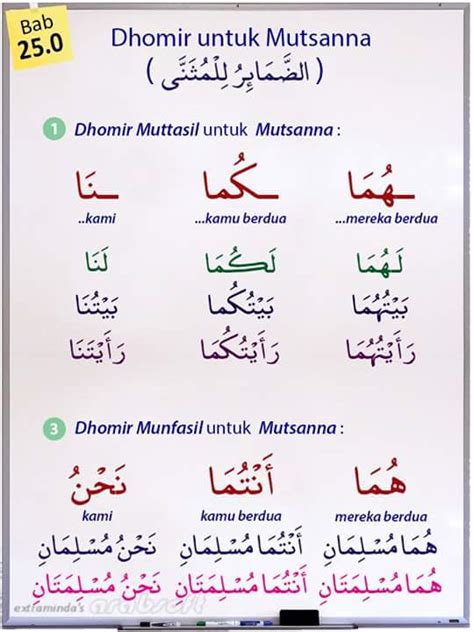 Bab
25.0
Dhomir untuk Mutsanna
( الضَّمَائِرُ لِلْمُثَنَّى )
1 Dhomir Muttasil untuk Mutsanna :
ـهُمَا ـكُما ـنَا
..kami ...kamu berdua ...mereka berdua
لَهُمَا لَكُمَا لَنَا
بَيْتُهُمَا بَيْتُكُما بَيْتُنَا
رَأَيْتُهُمَا رَأَيْتُكُمَا رَأَيْتَنَا
3 Dhomir Munfasil untuk Mutsanna :
هُمَا أَنْتُمَا نَحْنُ
kami kamu berdua mereka berdua
هُمَا مُسْلِمَانِ أَنْتُمَا مُسْلِمَانِ نَحْنُ مُسْلِمَانِ
هُمَا مُسْلِمَتَانِ أَنْتُمَا مُسْلِمَتَانِ نَحْنُ مُسْلِمَتَانِ